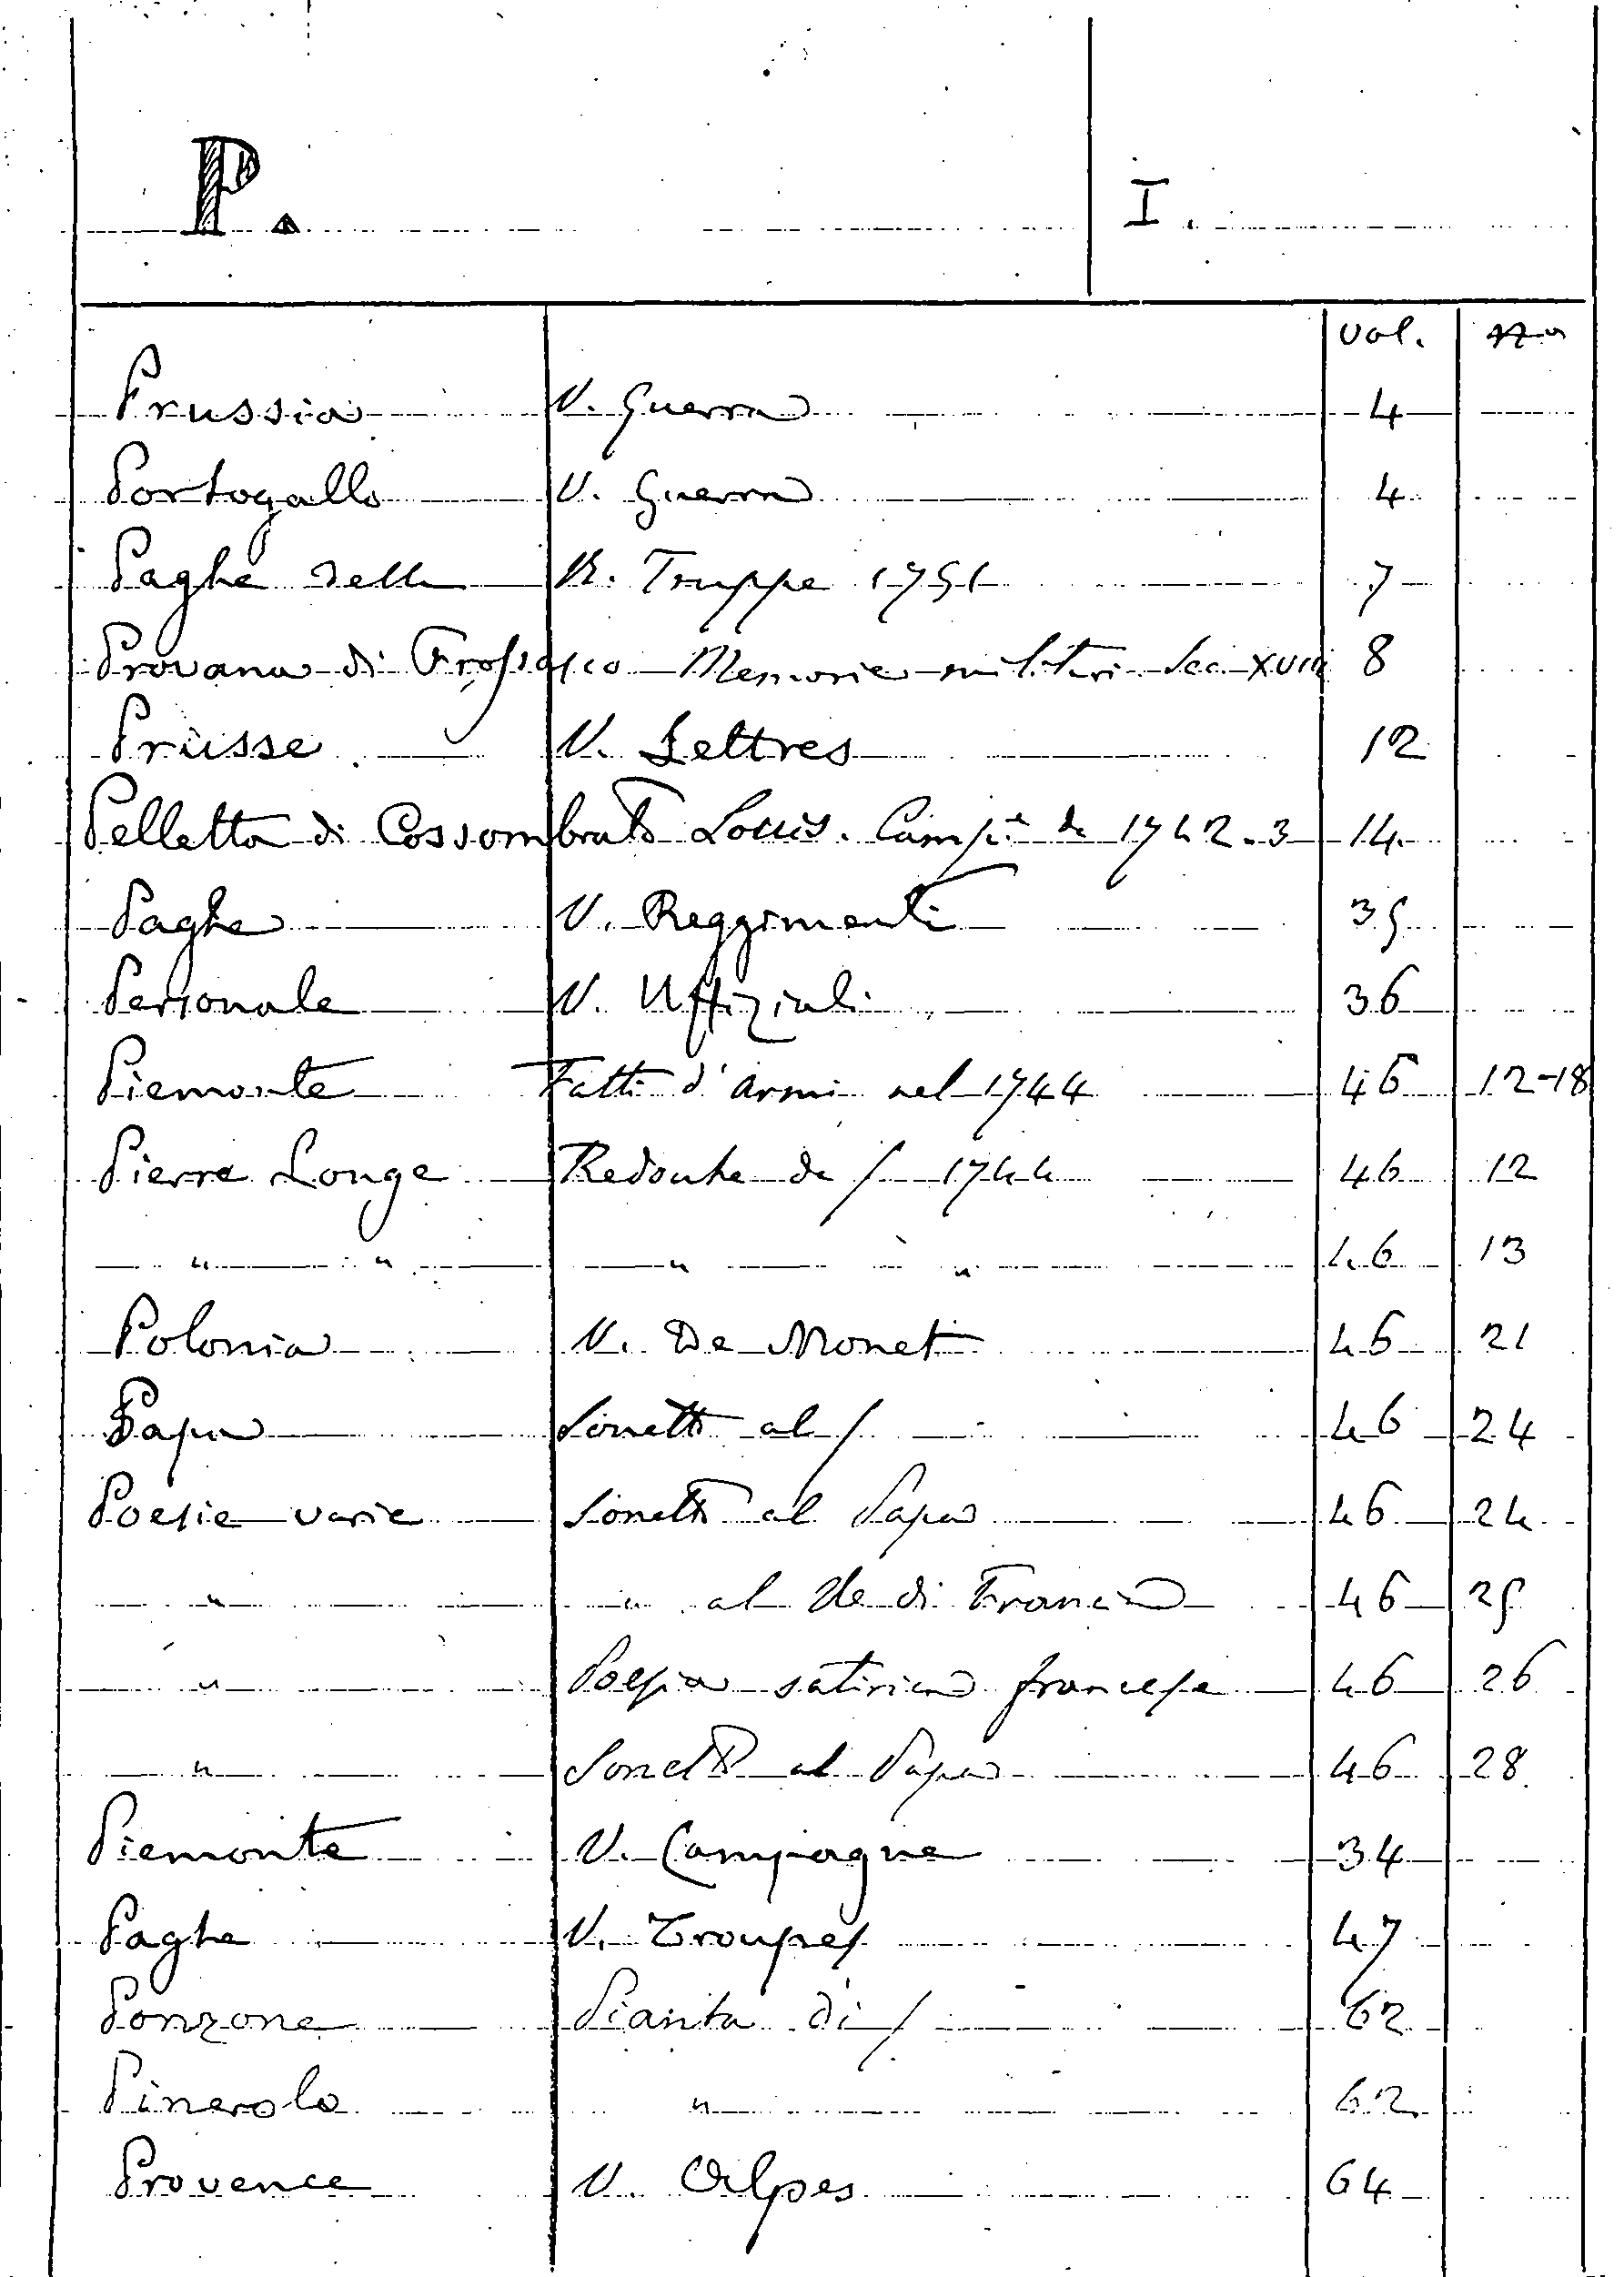 P. I.
vol. no
Prussia V. Guerra 4
Portogallo V. Guerra 4
Paghe delle R. Truppe 1751 7
Provana di Frossasco Memorie militari Sec. XVIII 8
Prusse V. Lettres 12
Pelletta di Cossombrato Louis. Camp.e de 1742-3 14
Paghe V. Reggimenti 35
Personale V. Uffiziali 36
Piemonte Fatti d'armi nel 1744 46 12-18
Pierre Longe Redoute de / 1744 46 12
" " " " 46 13
Polonia V. De Monet 46 21
Papa Sonetto al / 46 24
Poesie varie Sonetto al Papa 46 24
" " al Re di Francia 46 25
" Poesia satirica francese 46 26
" Sonetto al Papa 46 28
Piemonte V. Campagne 34
Paghe V. Troupes 47
Ponzone Pianta di / 62
Pinerolo " 62
Provence V. Alpes 64